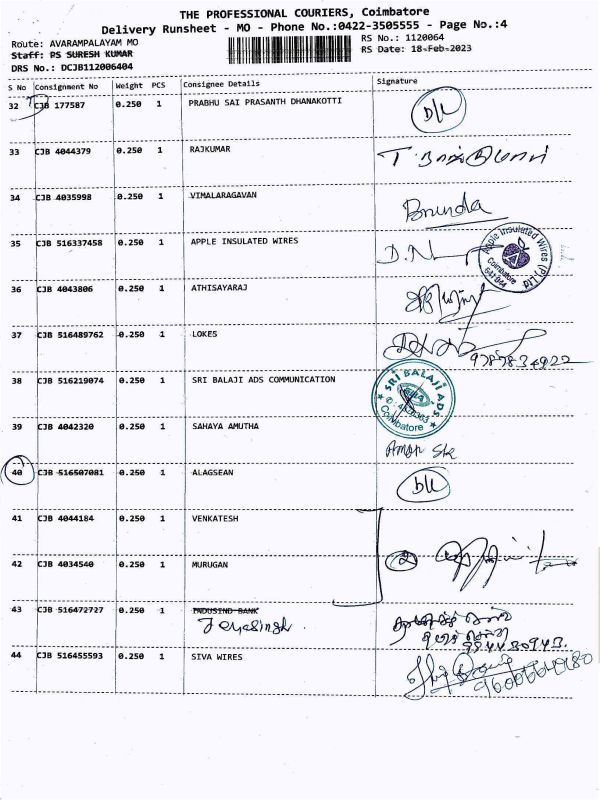 THE PROFESSIONAL COURIERS, Coimbatore
Delivery Runsheet - MO - Phone No.:0422-3505555 - Page No.:4
Route: AVARAMPALAYAM MO
RS No.: 1120064
Staff: PS SURESH KUMAR
RS Date: 18-Feb-2023
DRS No.: DCJB112006404
S No Consignment No Weight PCS Consignee Details Signature
32 CJB 177587 0.250 1 PRABHU SAI PRASANTH DHANAKOTTI D/L
33 CJB 4044379 0.250 1 RAJKUMAR
34 CJB 4035998 0.250 1 VIMALARAGAVAN Brunda
35 CJB 516337458 0.250 1 APPLE INSULATED WIRES D.N
Apple Insulated Wires (P) Ltd
Coimbatore
641 044
36 CJB 4043806 0.250 1 ATHISAYARAJ
37 CJB 516489762 0.250 1 LOKES
9787834922
38 CJB 516219074 0.250 1 SRI BALAJI ADS COMMUNICATION
SRI BALAJI ADS
Coimbatore
39 CJB 4042320 0.250 1 SAHAYA AMUTHA
40 CJB 516507081 0.250 1 ALAGSEAN D/L
41 CJB 4044184 0.250 1 VENKATESH
42 CJB 4034540 0.250 1 MURUGAN 2
43 CJB 516472727 0.250 1 INDUSIND BANK
Jeyasingh.
44 CJB 516455593 0.250 1 SIVA WIRES